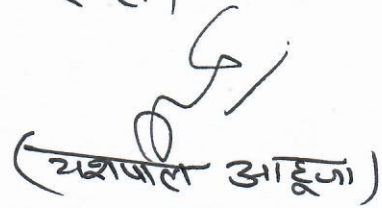 (यशपाल आहूजा)